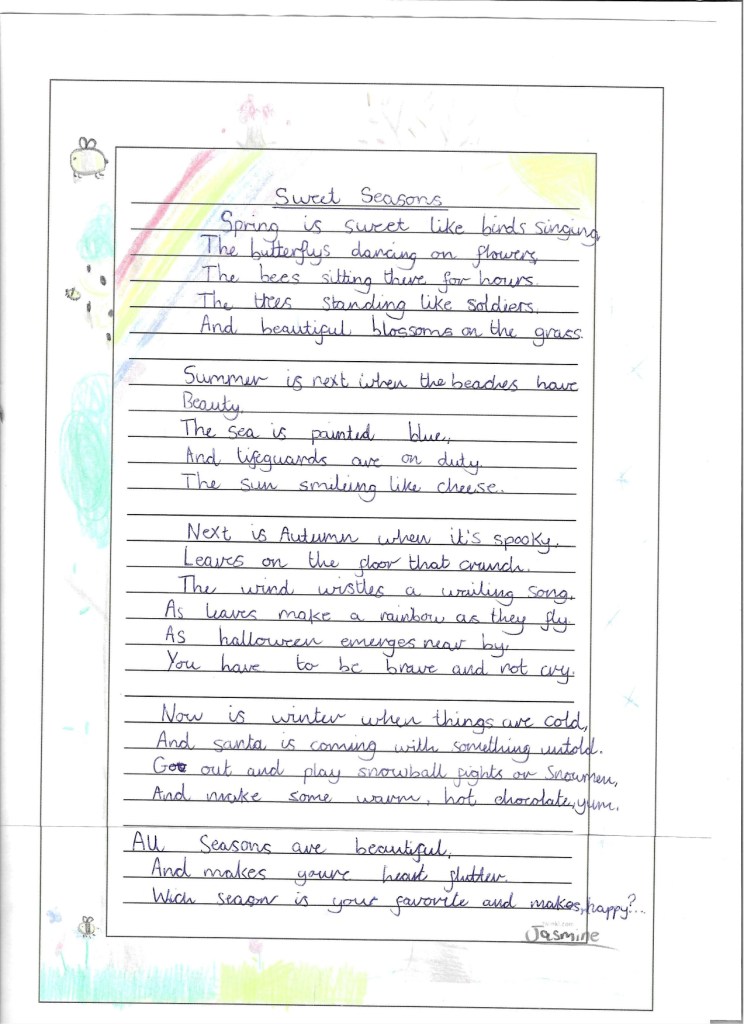 Sweet Seasons
Spring is sweet like birds singing,
The butterflys dancing on flowers,
The bees sitting there for hours.
The trees standing like soldiers,
And beautiful blossoms on the grass.
Summer is next when the beaches have
Beauty.
The sea is painted blue,,
And lifeguards are on duty.
The sun smileing like cheese.
Next is Autumn when it's spooky,
Leaves on the floor that crunch.
The wind wistles a wailing song,
As leaves make a rainbow as they fly
As halloween emerges near by,
You have to be brave and not cry.
Now is winter when things are cold,
And santa is coming with something untold.
Go out and play snowball fights or Snowmen,
And make some warm, hot chocolate, yum.
All Seasons are beautiful,
And makes youre heart flutter.
Wich season is your favorite and makes, happy?...
Jasmine